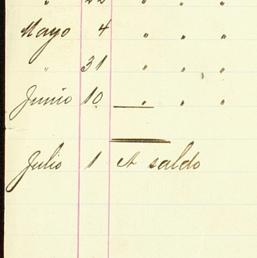 " 22 " " "
Mayo 4 " " "
" 31 " " "
Junio 10 " " "
Julio 1 A saldo